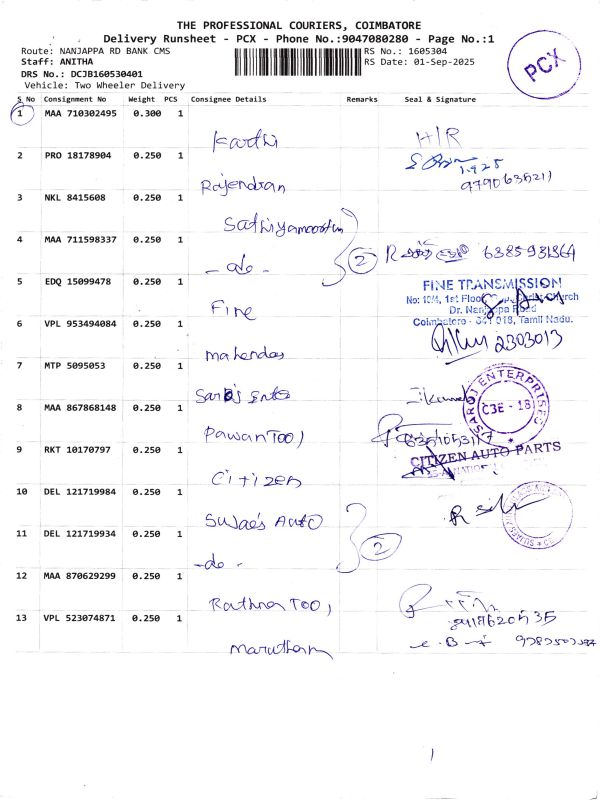 THE PROFESSIONAL COURIERS, COIMBATORE
Delivery Runsheet - PCX - Phone No.:9047080280 - Page No.:1
Route: NANJAPPA RD BANK CMS
RS No.: 1605304
Staff: ANITHA
RS Date: 01-Sep-2025
PCX
DRS No.: DCJB160530401
Vehicle: Two Wheeler Delivery
S No Consignment No Weight PCS Consignee Details Remarks Seal & Signature
1 MAA 710302495 0.300 1
Karthi H/R
2 PRO 18178904 0.250 1
1.9.25
Rajendran
3 NKL 8415608 0.250 1
Sathiyamoorthy
4 MAA 711598337 0.250 1
2
- do -
5 EDQ 15099478 0.250 1
FINE TRANSMISSION
Fine
No: 10/4, 1st Floor Christ Church
Dr. Nanjappa Road
6 VPL 953494084 0.250 1
Coimbatore - 641 018, Tamil Nadu.
2303013
Mahendas
7 MTP 5095053 0.250 1
SAROJ ENTERPRISES
CBE - 18
8 MAA 867868148 0.250 1
Pawan Tool
9 RKT 10170797 0.250 1
CITIZEN AUTO PARTS
Citizen
10 DEL 121719984 0.250 1
Sujae's Auto
11 DEL 121719934 0.250 1
2
- do -
12 MAA 870629299 0.250 1
Rathna Tool
13 VPL 523074871 0.250 1